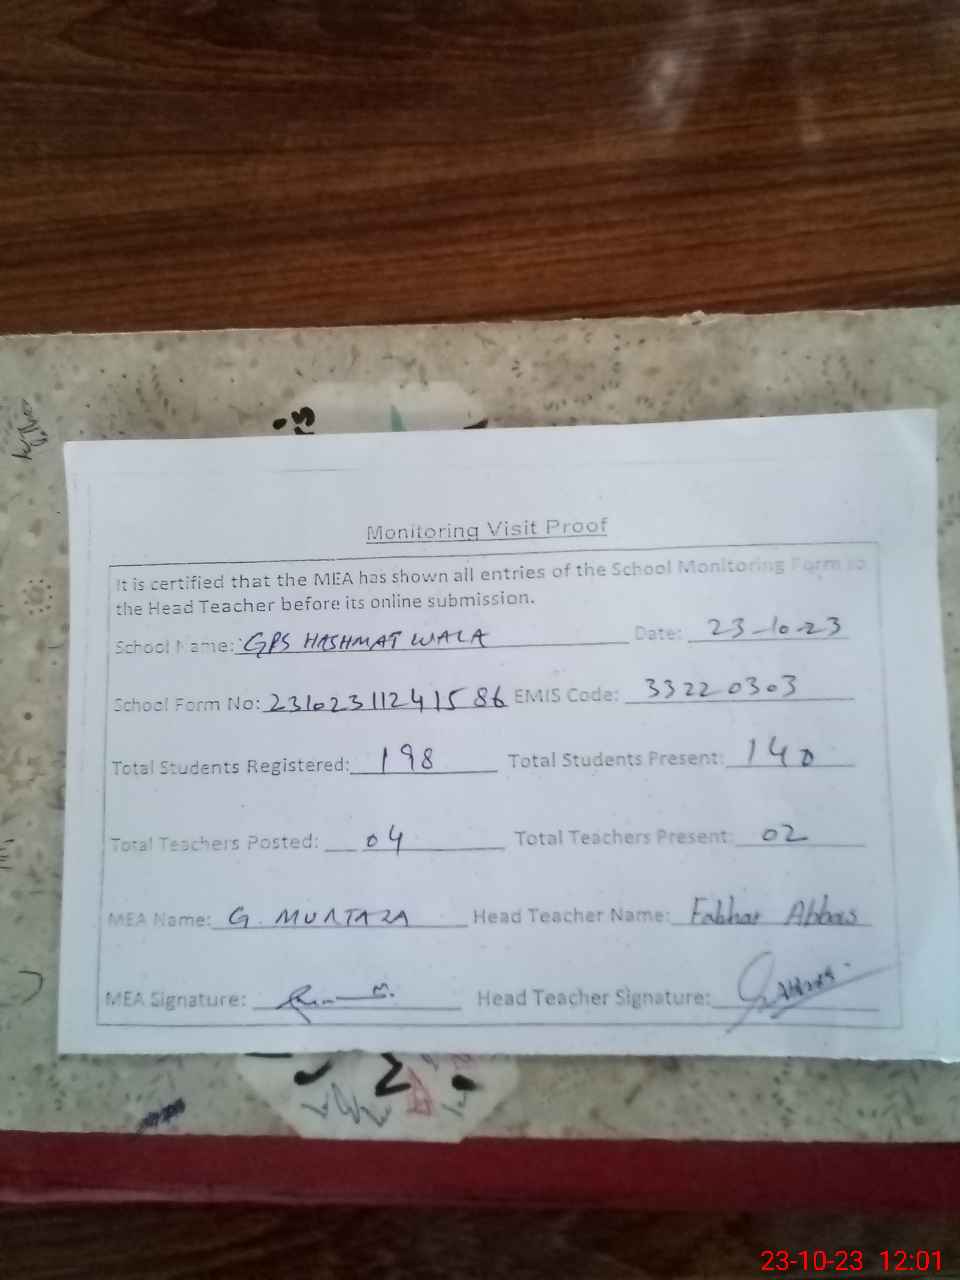 Monitoring Visit Proof
It is certified that the MEA has shown all entries of the School Monitoring Form to
the Head Teacher before its online submission.
School Name: GPS HASHMAT WALA Date: 23-10-23
School Form No: 23102311241586 EMIS Code: 33220303
Total Students Registered: 198 Total Students Present: 140
Total Teachers Posted: 04 Total Teachers Present: 02
MEA Name: G. MURTAZA Head Teacher Name: Abbas
MEA Signature: Head Teacher Signature:
23-10-23 12:01